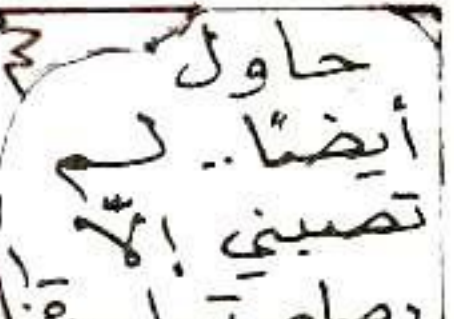 حاول
أيضًا.. لم
تصبني إلّا